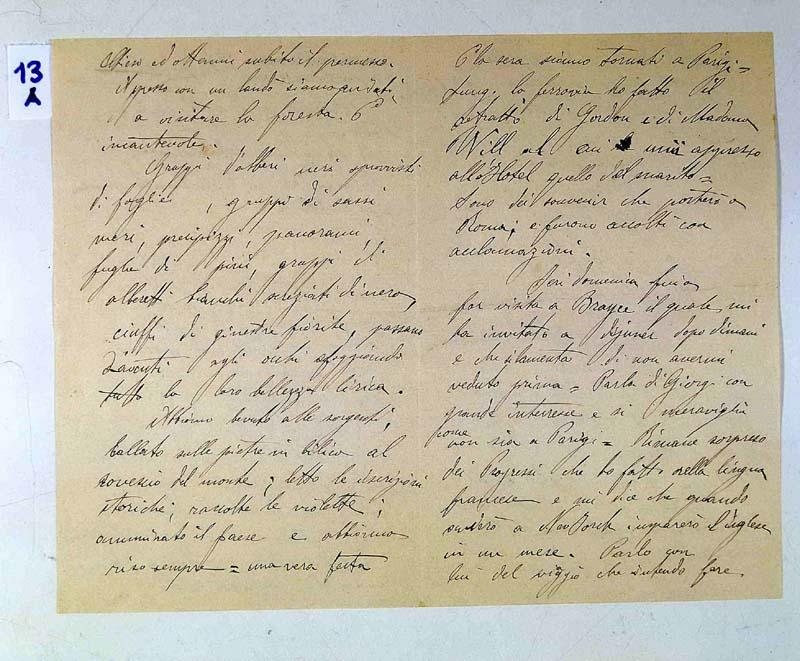 13
A
ed ottenni subito il permesso.
Appresso con un landò siamo andati
a visitare la foresta. È
incantevole.
Gruppi d'alberi neri sprovvisti
di foglie, gruppi di sassi
neri, precipizzi, panorami
fughe di pini, gruppi di
alberetti bianchi screziati di nero,
ciuffi di ginestre fiorite, passano
davanti agli occhi sfoggiando
tutto la loro bellezza lirica.
Abbiamo bevuto alle sorgenti,
ballato sulle pietre in bilico al
rovescio del monte; letto le iscrizioni
storiche; raccolte le violette;
amminato il paese e abbiamo
riso sempre = una vera festa
E la sera siamo tornati a Parigi =
Lung. la ferrovia ho fatto il
ritratto di Gordon e di Madama
Will al cui unii appresso
all'Hotel quello del marito =
Sono dei souvenir che porterò a
Roma; e furono accolti con
acclamazioni.
Ieri domenica fui a
far visita a Brayee il quale mi
ha invitato a dejuner dopo dimani
e che si lamenta di non avermi
veduto prima = Parla di Giorgi con
grande interesse e si meraviglia
come
non sia a Parigi = Rimane sorpreso
dei Progressi che ho fatto nella lingua
francese e mi dice che quando
andrò a New Jorck imparerò l'inglese
in un mese. Parlo con
lui del viaggio che intendo fare